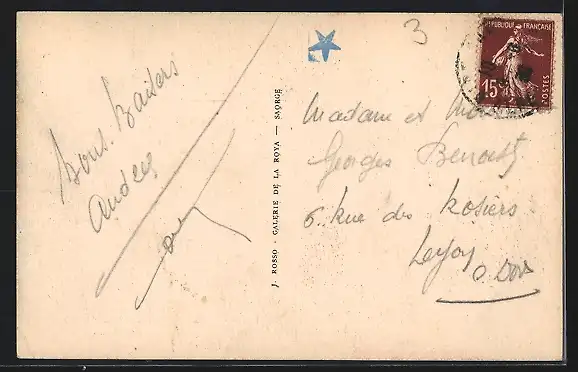 Bons Baisers
Andrée
J. ROSSO - GALERIE DE LA ROYA — SAORGE
3
RÉPUBLIQUE FRANÇAISE
15c
POSTES
Madame et
Georges Benoist
6. Rue des Rosiers